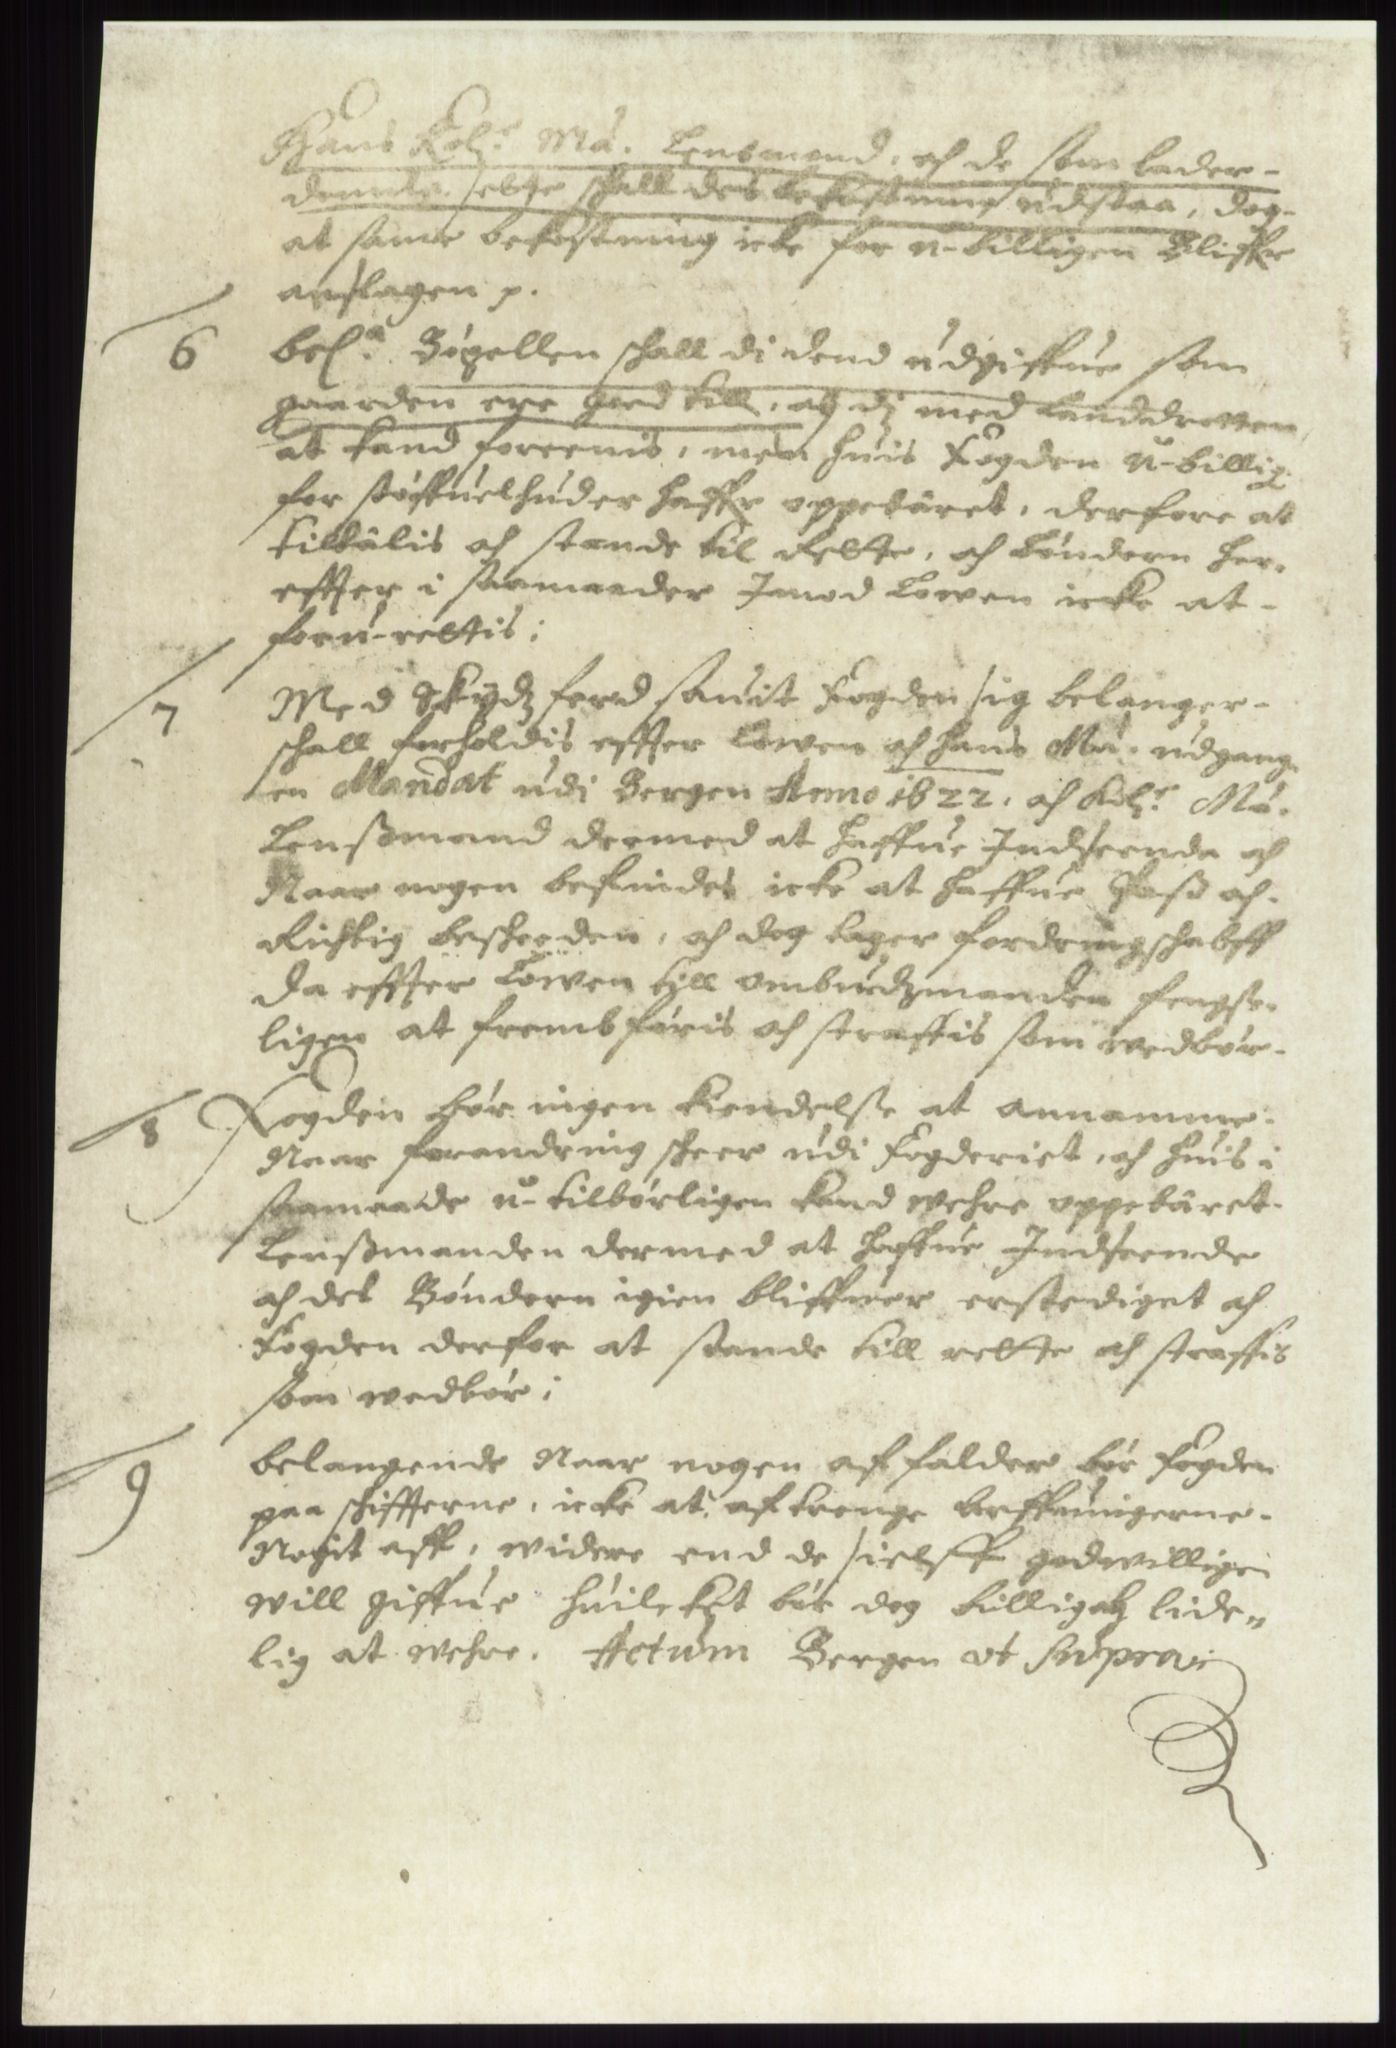 Hans Kolg: Ma. Lensmand, och de som lader-
dennle selge schall des bekostning udstaa, dog-
at same bekostning icke for u-billigen Bliffr
anslagen p.
6 bel.a Böxellen schall di dend udgiffue som
gaarden ere goed till, och di med Landdrotten
at kand foreenis, men huis Fogden u-billig
for støffuelhuder haffr oppebåret, derfore at
tiltålis och stande til Rette, och bøndern her-
effter i saamaader Imod Lowen icke at-
foru-rettis;
7 Med Skydz ferd sauit Fogden sig belanger-
schall forholdis effter Lowen och hans Ma: udgang-
en Mandat udi Bergen Anno 1622, och Kolg: Ma.
Lenßmand dermed at haffue Indseende och
Naar nogen befindes icke at haffue Paß och
Richtig beskeeden, och dog tager fordringschabff
da effter Lowen till ombudzmanden fengse-
ligen at frembføris och straffis som wedbør-
8 Fogden bør ingen kiendelße at annamme-
Naar forandring scheer udi Fogderiet, och huis i
saamaade u-tilbørligen kand wehre oppebåret-
Lenßmanden dermed at haffue Indseende
och det Bøndern igien bliffuer erstediget och
Fogden derfor at stande till rette och straffis
som wedbør;
9 belangende Naar nogen af falder bør fogden
paa schiffterne, icke at aftrenge arffuingerne-
Nogit aff, widere end de sielff godwilligen
will giffue huilcket bør dog billigch lide-
lig at wehre. Actum Bergen ut supra: